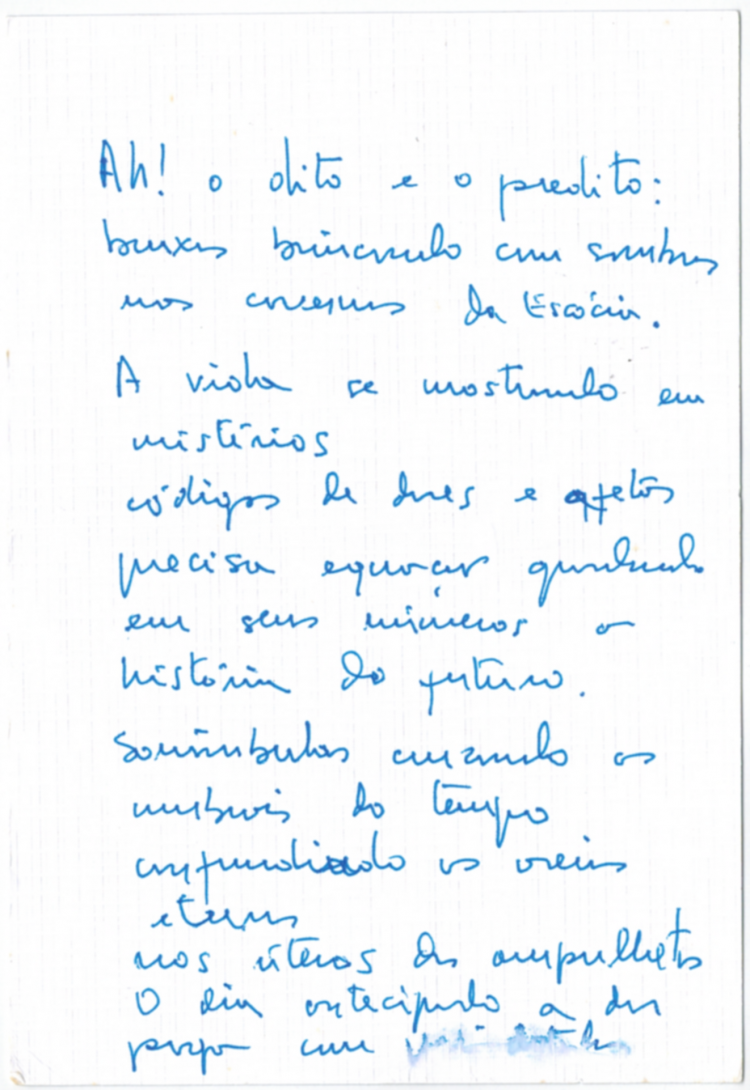 Ah! o dito e o predito:
bruxas brincando com sombras
nos cavernas da Escócia.
A vida se mostrando em
mistérios
códigos de dores e afetos
precisa equivocar guardando
em seus números a
história do futuro.
Sonâmbulas cruzando os
umbrais do tempo
confundindo os
eternas
nos úteros das ampulhetas
O dia antecipado a dar
prazo com